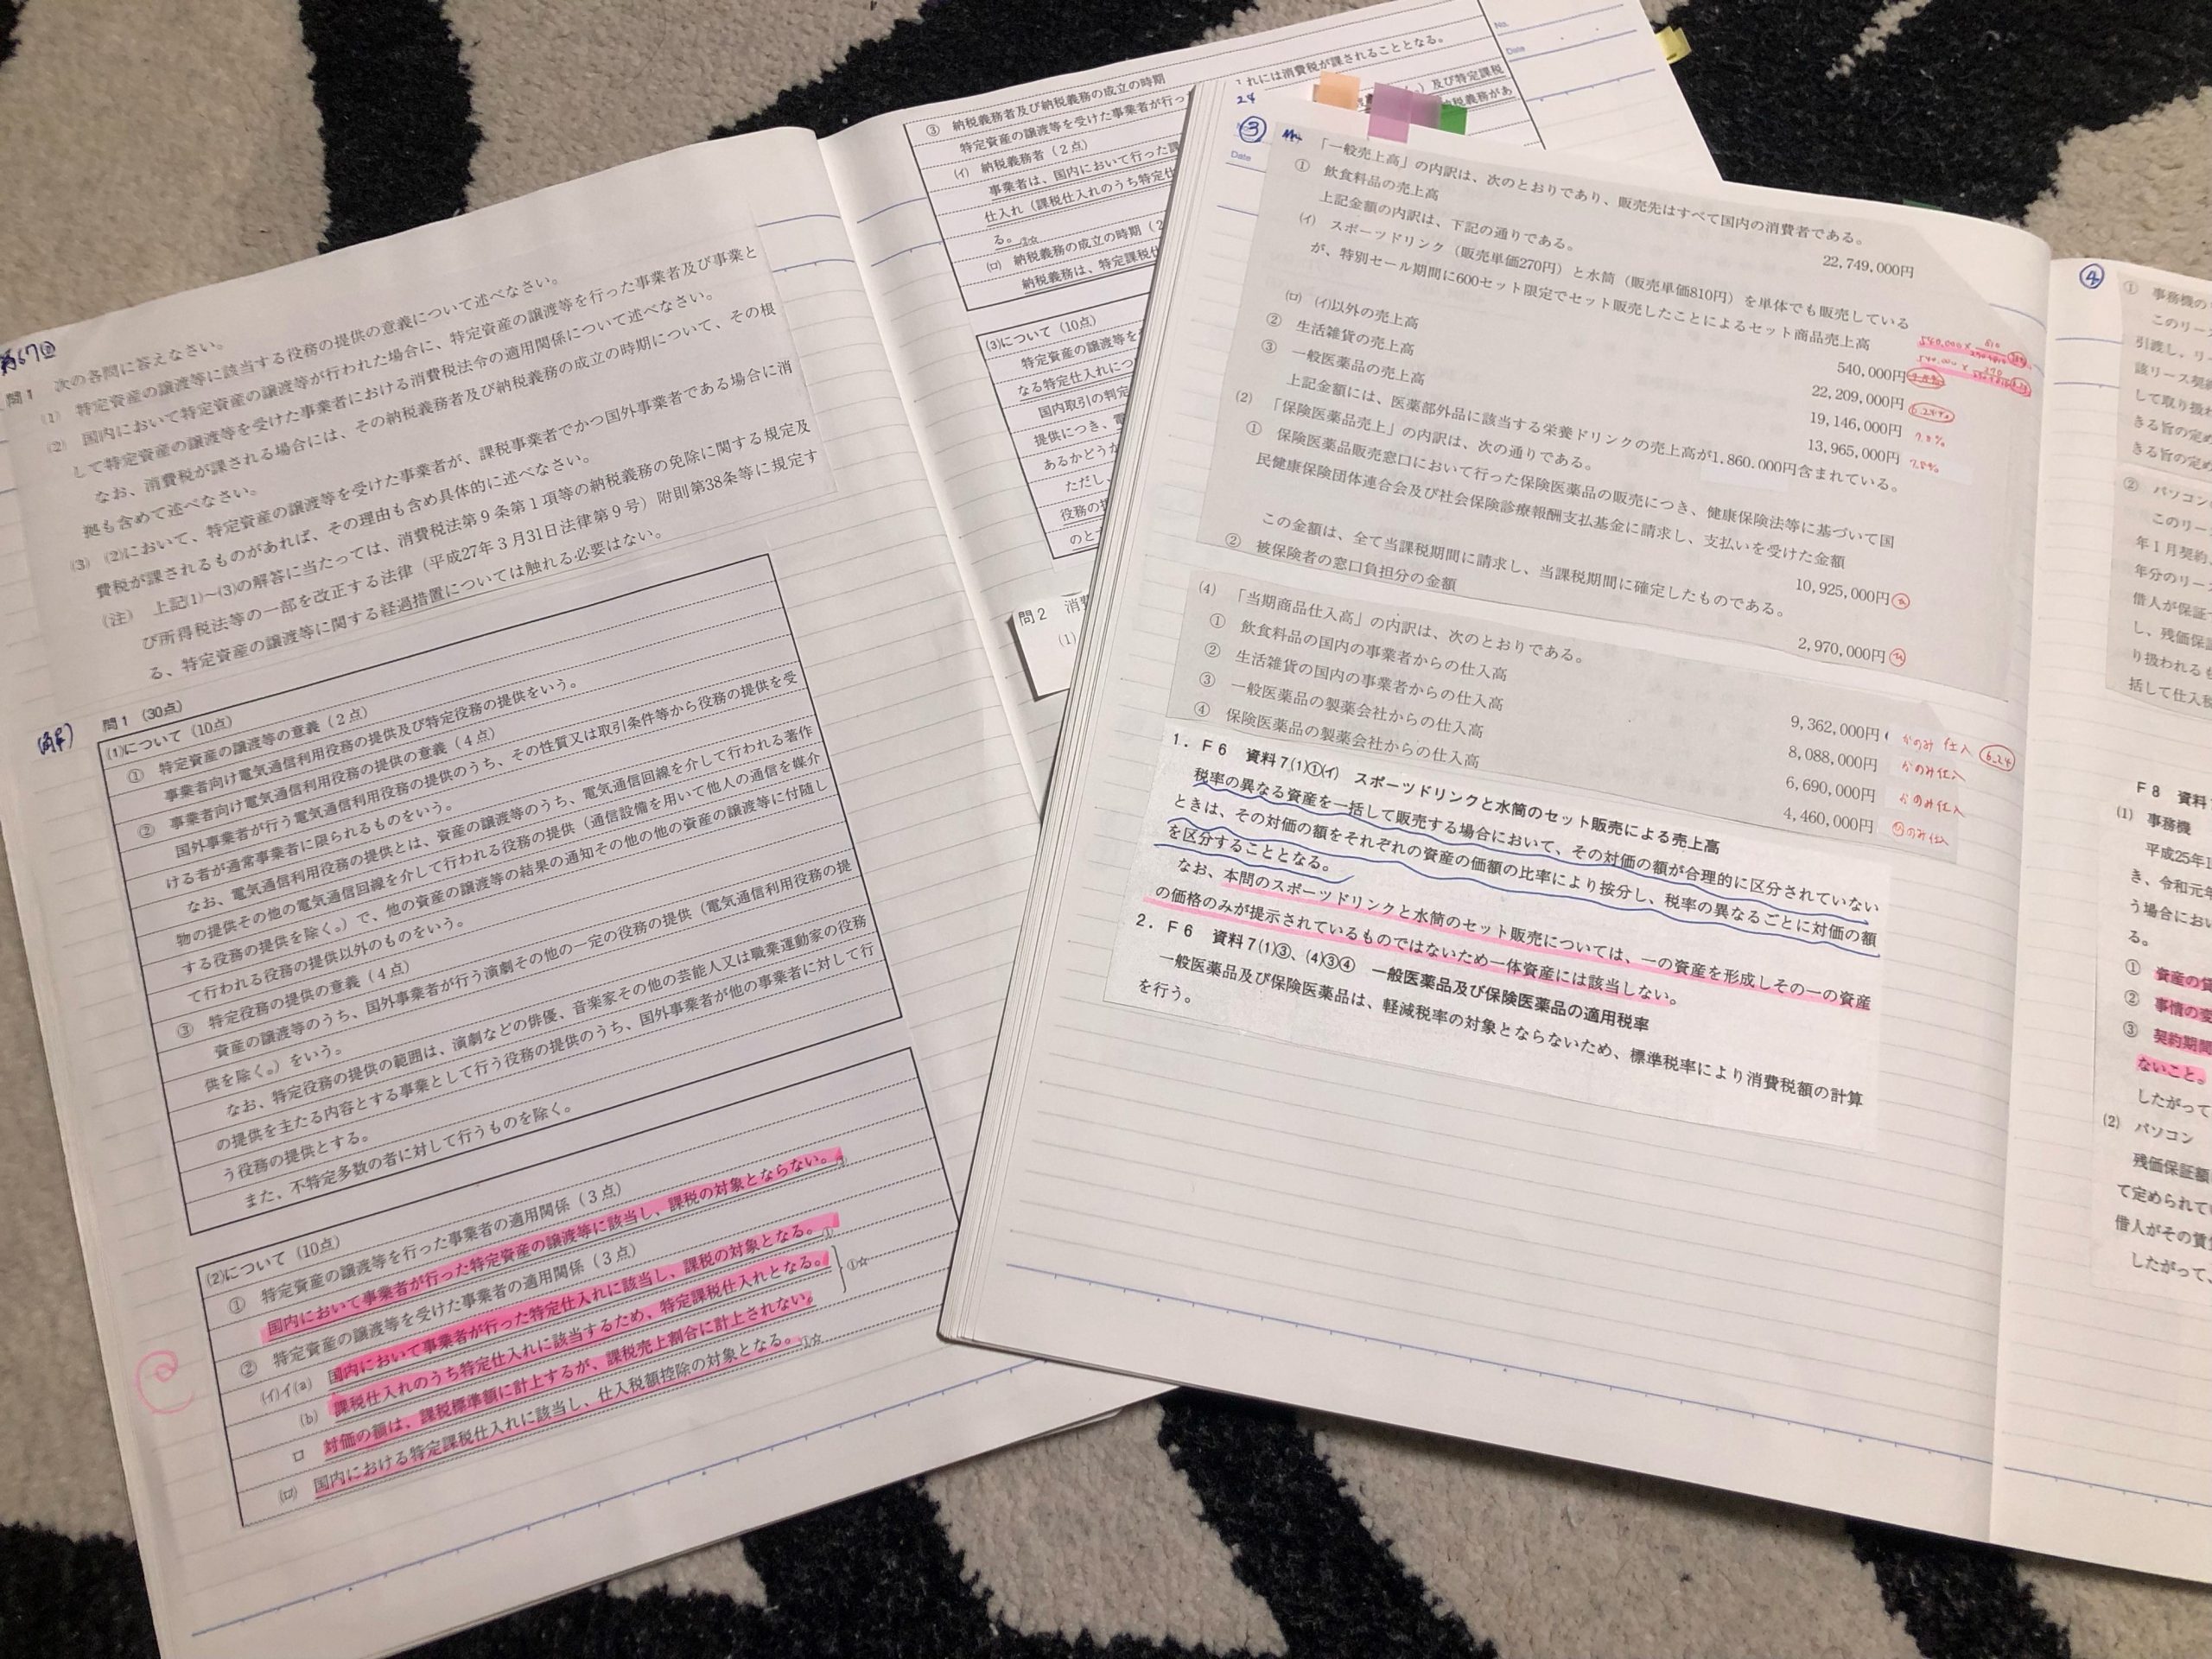 第67回
問1 次の各問に答えなさい。
(1) 特定資産の譲渡等に該当する役務の提供の意義について述べなさい。
(2) 国内において特定資産の譲渡等が行われた場合に、特定資産の譲渡等を行った事業者及び事業と
して特定資産の譲渡等を受けた事業者における消費税法令の適用関係について述べなさい。
なお、消費税が課される場合には、その納税義務者及び納税義務の成立の時期について、その根
拠も含めて述べなさい。
(3) (2)において、特定資産の譲渡等を受けた事業者が、課税事業者でかつ国外事業者である場合に消
費税が課されるものがあれば、その理由も含め具体的に述べなさい。
(注) 上記(1)~(3)の解答に当たっては、消費税法第9条第1項等の納税義務の免除に関する規定及
び所得税法等の一部を改正する法律(平成27年3月31日法律第9号)附則第38条等に規定す
る、特定資産の譲渡等に関する経過措置については触れる必要はない。
(解)
問1 (30点)
(1)について(10点)
① 特定資産の譲渡等の意義(2点)
事業者向け電気通信利用役務の提供及び特定役務の提供をいう。
② 事業者向け電気通信利用役務の提供の意義(4点)
国外事業者が行う電気通信利用役務の提供のうち、その性質又は取引条件等から役務の提供を受
ける者が通常事業者に限られるものをいう。
なお、電気通信利用役務の提供とは、資産の譲渡等のうち、電気通信回線を介して行われる著作
物の提供その他の電気通信回線を介して行われる役務の提供(通信設備を用いて他人の通信を媒介
する役務の提供を除く。)で、他の資産の譲渡等の結果の通知その他の他の資産の譲渡等に付随し
て行われる役務の提供以外のものをいう。
③ 特定役務の提供の意義(4点)
資産の譲渡等のうち、国外事業者が行う演劇その他の一定の役務の提供(電気通信利用役務の提
供を除く。)をいう。
なお、特定役務の提供の範囲は、演劇などの俳優、音楽家その他の芸能人又は職業運動家の役務
の提供を主たる内容とする事業として行う役務の提供のうち、国外事業者が他の事業者に対して行
う役務の提供とする。
また、不特定多数の者に対して行うものを除く。
(2)について(10点)
① 特定資産の譲渡等を行った事業者の適用関係(3点)
国内において事業者が行った特定資産の譲渡等に該当し、課税の対象とならない。
② 特定資産の譲渡等を受けた事業者の適用関係(3点)
(イ)イ(a) 国内において事業者が行った特定仕入れに該当し、課税の対象となる。①
(b) 課税仕入れのうち特定仕入れに該当するため、特定課税仕入れとなる。
ロ 対価の額は、課税標準額に計上するが、課税売上割合に計上されない。
①☆
(ロ) 国内における特定課税仕入れに該当し、仕入税額控除の対象となる。①☆
③ 納税義務者及び納税義務の成立の時期
特定資産の譲渡等を受けた事業者が行っ
(イ) 納税義務者(2点)
事業者は、国内において行った課
仕入れ(課税仕入れのうち特定仕
る。②☆
(ロ) 納税義務の成立の時期(2
納税義務は、特定課税仕
(3)について(10点)
特定資産の譲渡等を
なる特定仕入れにつ
国内取引の判定
提供につき、電
あるかどうか
ただし、
役務の提
のとす
問2 消費
(1)
れには消費税が課されることとなる。
)及び特定課税
税義務があ
No.
Date
24
③
Date
「一般売上高」の内訳は、次のとおりであり、販売先はすべて国内の消費者である。
① 飲食料品の売上高 22,749,000円
上記金額の内訳は、下記の通りである。
(イ) スポーツドリンク(販売単価270円)と水筒(販売単価810円)を単体でも販売している
が、特別セール期間に600セット限定でセット販売したことによるセット商品売上高
540,000円
(ロ) (イ)以外の売上高 22,209,000円
② 生活雑貨の売上高 19,146,000円 7.8%
③ 一般医薬品の売上高 13,965,000円 7.8%
上記金額には、医薬部外品に該当する栄養ドリンクの売上高が1,860,000円含まれている。
(2) 「保険医薬品売上」の内訳は、次の通りである。
① 保険医薬品販売窓口において行った保険医薬品の販売につき、健康保険法等に基づいて国
民健康保険団体連合会及び社会保険診療報酬支払基金に請求し、支払いを受けた金額
10,925,000円
この金額は、全て当課税期間に請求し、当課税期間に確定したものである。
② 被保険者の窓口負担分の金額 2,970,000円
(4) 「当期商品仕入高」の内訳は、次のとおりである。
① 飲食料品の国内の事業者からの仕入高 9,362,000円 かのみ 仕入 6.24
② 生活雑貨の国内の事業者からの仕入高 8,088,000円 かのみ仕入
③ 一般医薬品の製薬会社からの仕入高 6,690,000円 かのみ仕入
④ 保険医薬品の製薬会社からの仕入高 4,460,000円
1.F6 資料7(1)①(イ) スポーツドリンクと水筒のセット販売による売上高
税率の異なる資産を一括して販売する場合において、その対価の額が合理的に区分されていない
ときは、その対価の額をそれぞれの資産の価額の比率により按分し、税率の異なるごとに対価の額
を区分することとなる。
なお、本問のスポーツドリンクと水筒のセット販売については、一の資産を形成しその一の資産
の価格のみが提示されているものではないため一体資産には該当しない。
2.F6 資料7(1)③、(4)③④ 一般医薬品及び保険医薬品の適用税率
一般医薬品及び保険医薬品は、軽減税率の対象とならないため、標準税率により消費税額の計算
を行う。
④
① 事務機の
このリース
引渡し、リー
該リース契約
して取り扱わ
きる旨の定め
きる旨の定め
② パソコン
このリー
年1月契約、
年分のリー
借人が保証
し、残価保証
り扱われるも
括して仕入税
F8 資料
(1) 事務機
平成25年1
き、令和元年
う場合におい
る。
① 資産の貸
② 事情の変
③ 契約期間
ないこと。
したがって
(2) パソコン
残価保証額
て定められてい
借人がその賃
したがって、